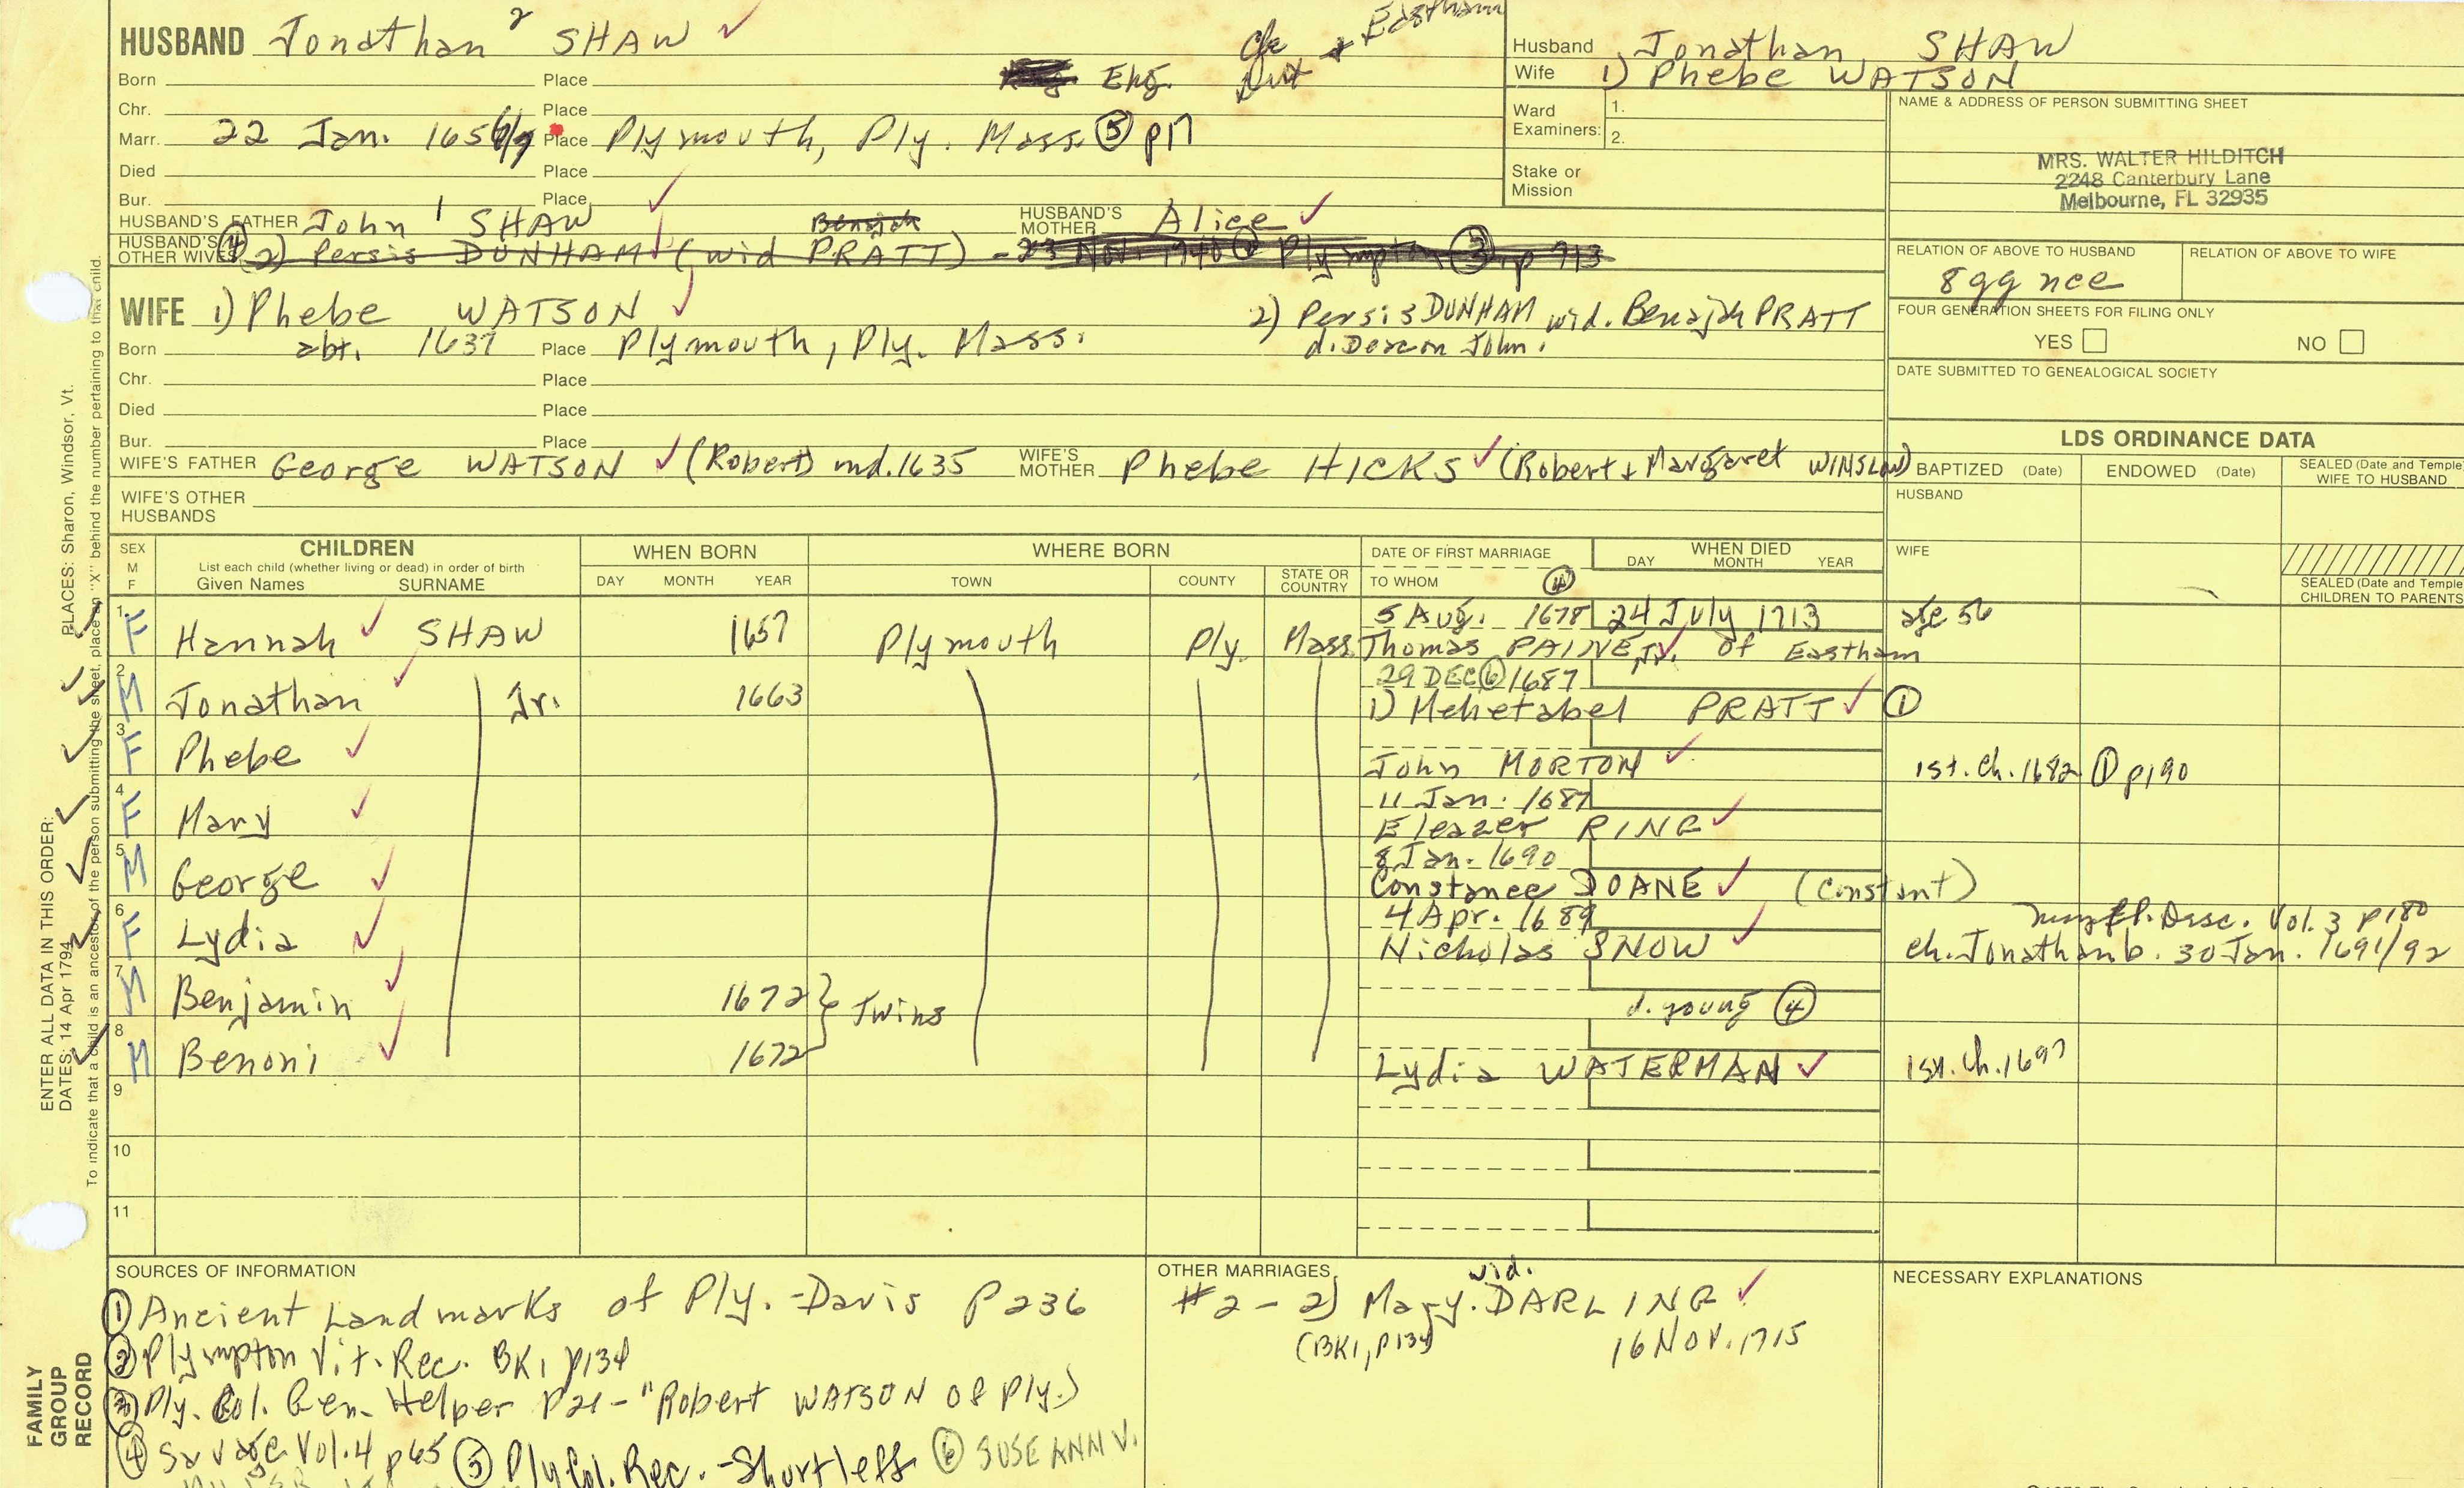 HUSBAND Jonathan 2 SHAW ✓
Eng.
Eastham
Husband Jonathan SHAW
Wife 1) Phebe WATSON
Born Place
Chr. Place
Marr. 22 Jan. 1656/7 Place Plymouth, Ply. Mass. ⑤ p17
Died Place
Bur. Place
Ward
Examiners:
1.
2.
Stake or
Mission
NAME & ADDRESS OF PERSON SUBMITTING SHEET
MRS. WALTER HILDITCH
2248 Canterbury Lane
Melbourne, FL 32935
HUSBAND'S FATHER John 1 SHAW ✓
HUSBAND'S MOTHER Alice ✓
Benajah
HUSBAND'S OTHER WIVES ④ 2) Persis DUNHAM ✓ (wid PRATT) - 23 Nov. 1740 Plympton ② p 913
RELATION OF ABOVE TO HUSBAND
8 gg nce
RELATION OF ABOVE TO WIFE
FOUR GENERATION SHEETS FOR FILING ONLY
YES NO
DATE SUBMITTED TO GENEALOGICAL SOCIETY
WIFE 1) Phebe WATSON ✓
2) Persis DUNHAM wid. Benajah PRATT
d. Deacon John.
Born abt. 1637 Place Plymouth, Ply. Mass.
Chr. Place
Died Place
Bur. Place
WIFE'S FATHER George WATSON ✓ (Robert) md. 1635
WIFE'S MOTHER Phebe HICKS ✓ (Robert + Margaret WINSLOW)
WIFE'S OTHER
HUSBANDS
LDS ORDINANCE DATA
BAPTIZED (Date) ENDOWED (Date) SEALED (Date and Temple)
WIFE TO HUSBAND
HUSBAND
WIFE
SEALED (Date and Temple)
CHILDREN TO PARENTS
SEX
M
F
CHILDREN
List each child (whether living or dead) in order of birth
Given Names SURNAME
WHEN BORN
DAY MONTH YEAR
WHERE BORN
TOWN COUNTY STATE OR COUNTRY
DATE OF FIRST MARRIAGE
TO WHOM ④
WHEN DIED
DAY MONTH YEAR
1 F Hannah ✓ SHAW 1657 Plymouth Ply. Mass. 5 Aug. 1678 24 July 1713 age 56
Thomas PAINE, Jr. ✓ of Eastham
2 M Jonathan ✓ Jr. 1663 29 DEC ⑥ 1687
1) Mehetabel PRATT ✓ ①
3 F Phebe ✓ John MORTON ✓ 1st. ch. 1682 ① p190
4 F Mary ✓ 11 Jan. 1687
Eleazer RING ✓
5 M George ✓ 8 Jan. 1690
Constance DOANE ✓ (Constant)
6 F Lydia ✓ 4 Apr. 1689
Nicholas SNOW ✓
Desc. Vol. 3 p180
ch. Jonathan b. 30 Jan. 1691/92
7 M Benjamin ✓ 1672 } Twins d. young ④
8 M Benoni ✓ 1672 Lydia WATERMAN ✓ 1st. ch. 1697
9
10
11
SOURCES OF INFORMATION
① Ancient Landmarks of Ply. - Davis P 236
② Plympton Vit. Rec. BK 1 p134
③ Ply. Col. Gen. Helper P21 - "Robert WATSON of Ply.)
④ Savage Vol. 4 p65 ⑤ Ply Col. Rec. - Shurtleff ⑥ SUSE ANN V.
OTHER MARRIAGES
#2 - 2) Mary wid. DARLING ✓
(BK1, P134) 16 NOV. 1715
NECESSARY EXPLANATIONS
ENTER ALL DATA IN THIS ORDER:
DATES: 14 Apr 1794
PLACES: Sharon, Windsor, Vt.
To indicate that a child is an ancestor of the person submitting the sheet, place an "X" behind the number pertaining to that child.
FAMILY
GROUP
RECORD